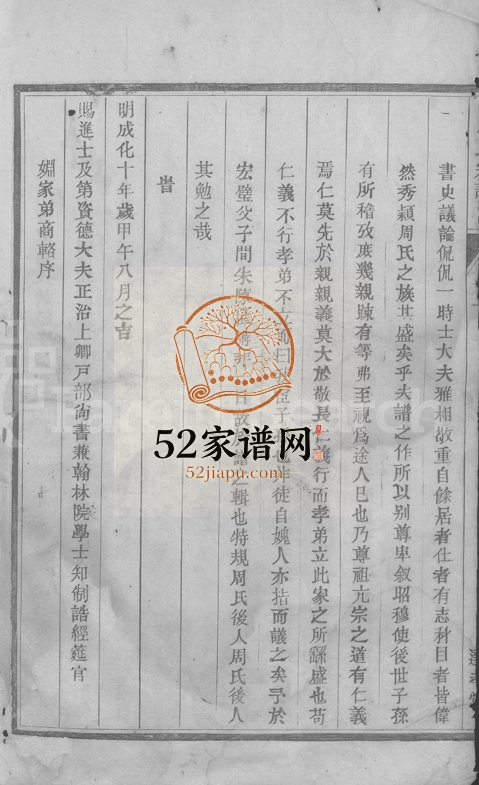 書史議論侃侃一時士大夫雅相敬重自餘居者仕者有志科目者皆偉
然秀穎周氏之族其盛矣乎夫譜之作所以别尊卑叙昭穆使後世子孫
有所稽攷庶幾親踈有等弗至視爲途人已也乃尊祖亢宗之道有仁義
焉仁莫先於親親義莫大於敬長仁義行而孝弟立此家之所繇盛也苟
仁義不行孝弟不立 徒自媿人亦指而議之矣予於
宏璧父子間朱陳 輯也特規周氏後人周氏後人
其勉之哉
旹
明成化十年歲甲午八月之吉
賜進士及第資德大夫正治上卿戸部尚書兼翰林院學士知制誥經筵官
姻家弟商輅序
52家谱网
52jiapu.com